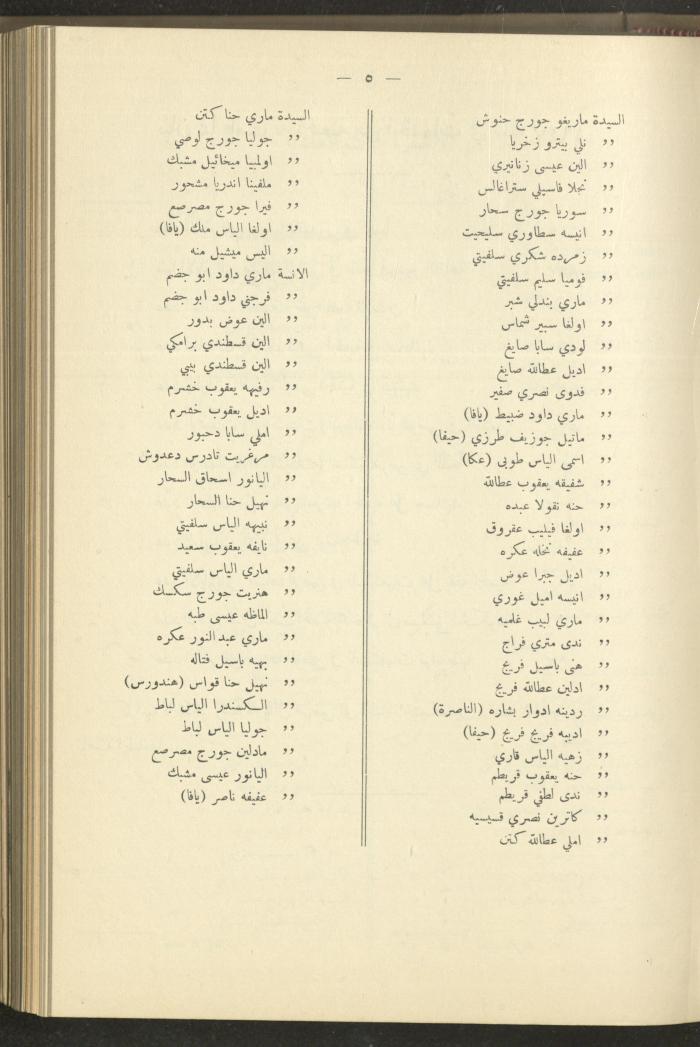 — ٥ —
السيدة ماريغو جورج حنوش
,, نلي بيترو زخريا
,, الين عيسى زنانيري
,, نجلا فاسيلي ستراغالس
,, سوريا جورج سحار
,, انيسه سطاوري سليحيت
,, زمرده شكري سلفيتي
,, فوميا سليم سلفيتي
,, ماري بندلي شبر
,, اولغا سبير شماس
,, لودي سابا صايغ
,, اديل عطاالله صايغ
,, فدوى نصري صفير
,, ماري داود ضبيط (يافا)
,, ماتيل جوزيف طرزي (حيفا)
,, اسمى الياس طوبى (عكا)
,, شفيقه يعقوب عطاالله
,, حنه نقولا عبده
,, اولغا فيليب عفروق
,, عفيفه نخله عكره
,, اديل جبرا عوض
,, انيسه اميل غوري
,, ماري لبيب غلميه
,, ندى متري فراج
,, هنى باسيل فريج
,, ادلين عطاالله فريج
,, ردينه ادوار بشاره (الناصرة)
,, اديبه فريج فريج (حيفا)
,, زهيه الياس قاري
,, حنه يعقوب قريطم
,, ندى لطفي قريطم
,, كاترين نصري قسيسيه
,, املي عطاالله كتن
السيدة ماري حنا كتن
,, جوليا جورج لوصي
,, اولمبيا ميخائيل مشبك
,, ملفينا اندريا مشحور
,, فيرا جورج مصرصع
,, اولغا الياس ملك (يافا)
,, اليس ميشيل منه
الانسة ماري داود ابو جضم
,, فرجني داود ابو جضم
,, الين عوض بدور
,, الين قسطندي برامكي
,, الين قسطندي بيبي
,, رفيهه يعقوب خشرم
,, اديل يعقوب خشرم
,, املي سابا دحبور
,, مرغريت تادرس دعدوش
,, اليانور اسحاق السحار
,, نهيل حنا السحار
,, نبيهه الياس سلفيتي
,, نايفه يعقوب سعيد
,, ماري الياس سلفيتي
,, هنريت جورج سكسك
,, الماظه عيسى طبه
,, ماري عبد النور عكره
,, بهيه باسيل فتاله
,, نهيل حنا قواس (هندورس)
,, السكسندرا الياس لباط
,, جوليا الياس لباط
,, مادلين جورج مصرصع
,, اليانور عيسى مشبك
,, عفيفه ناصر (يافا)